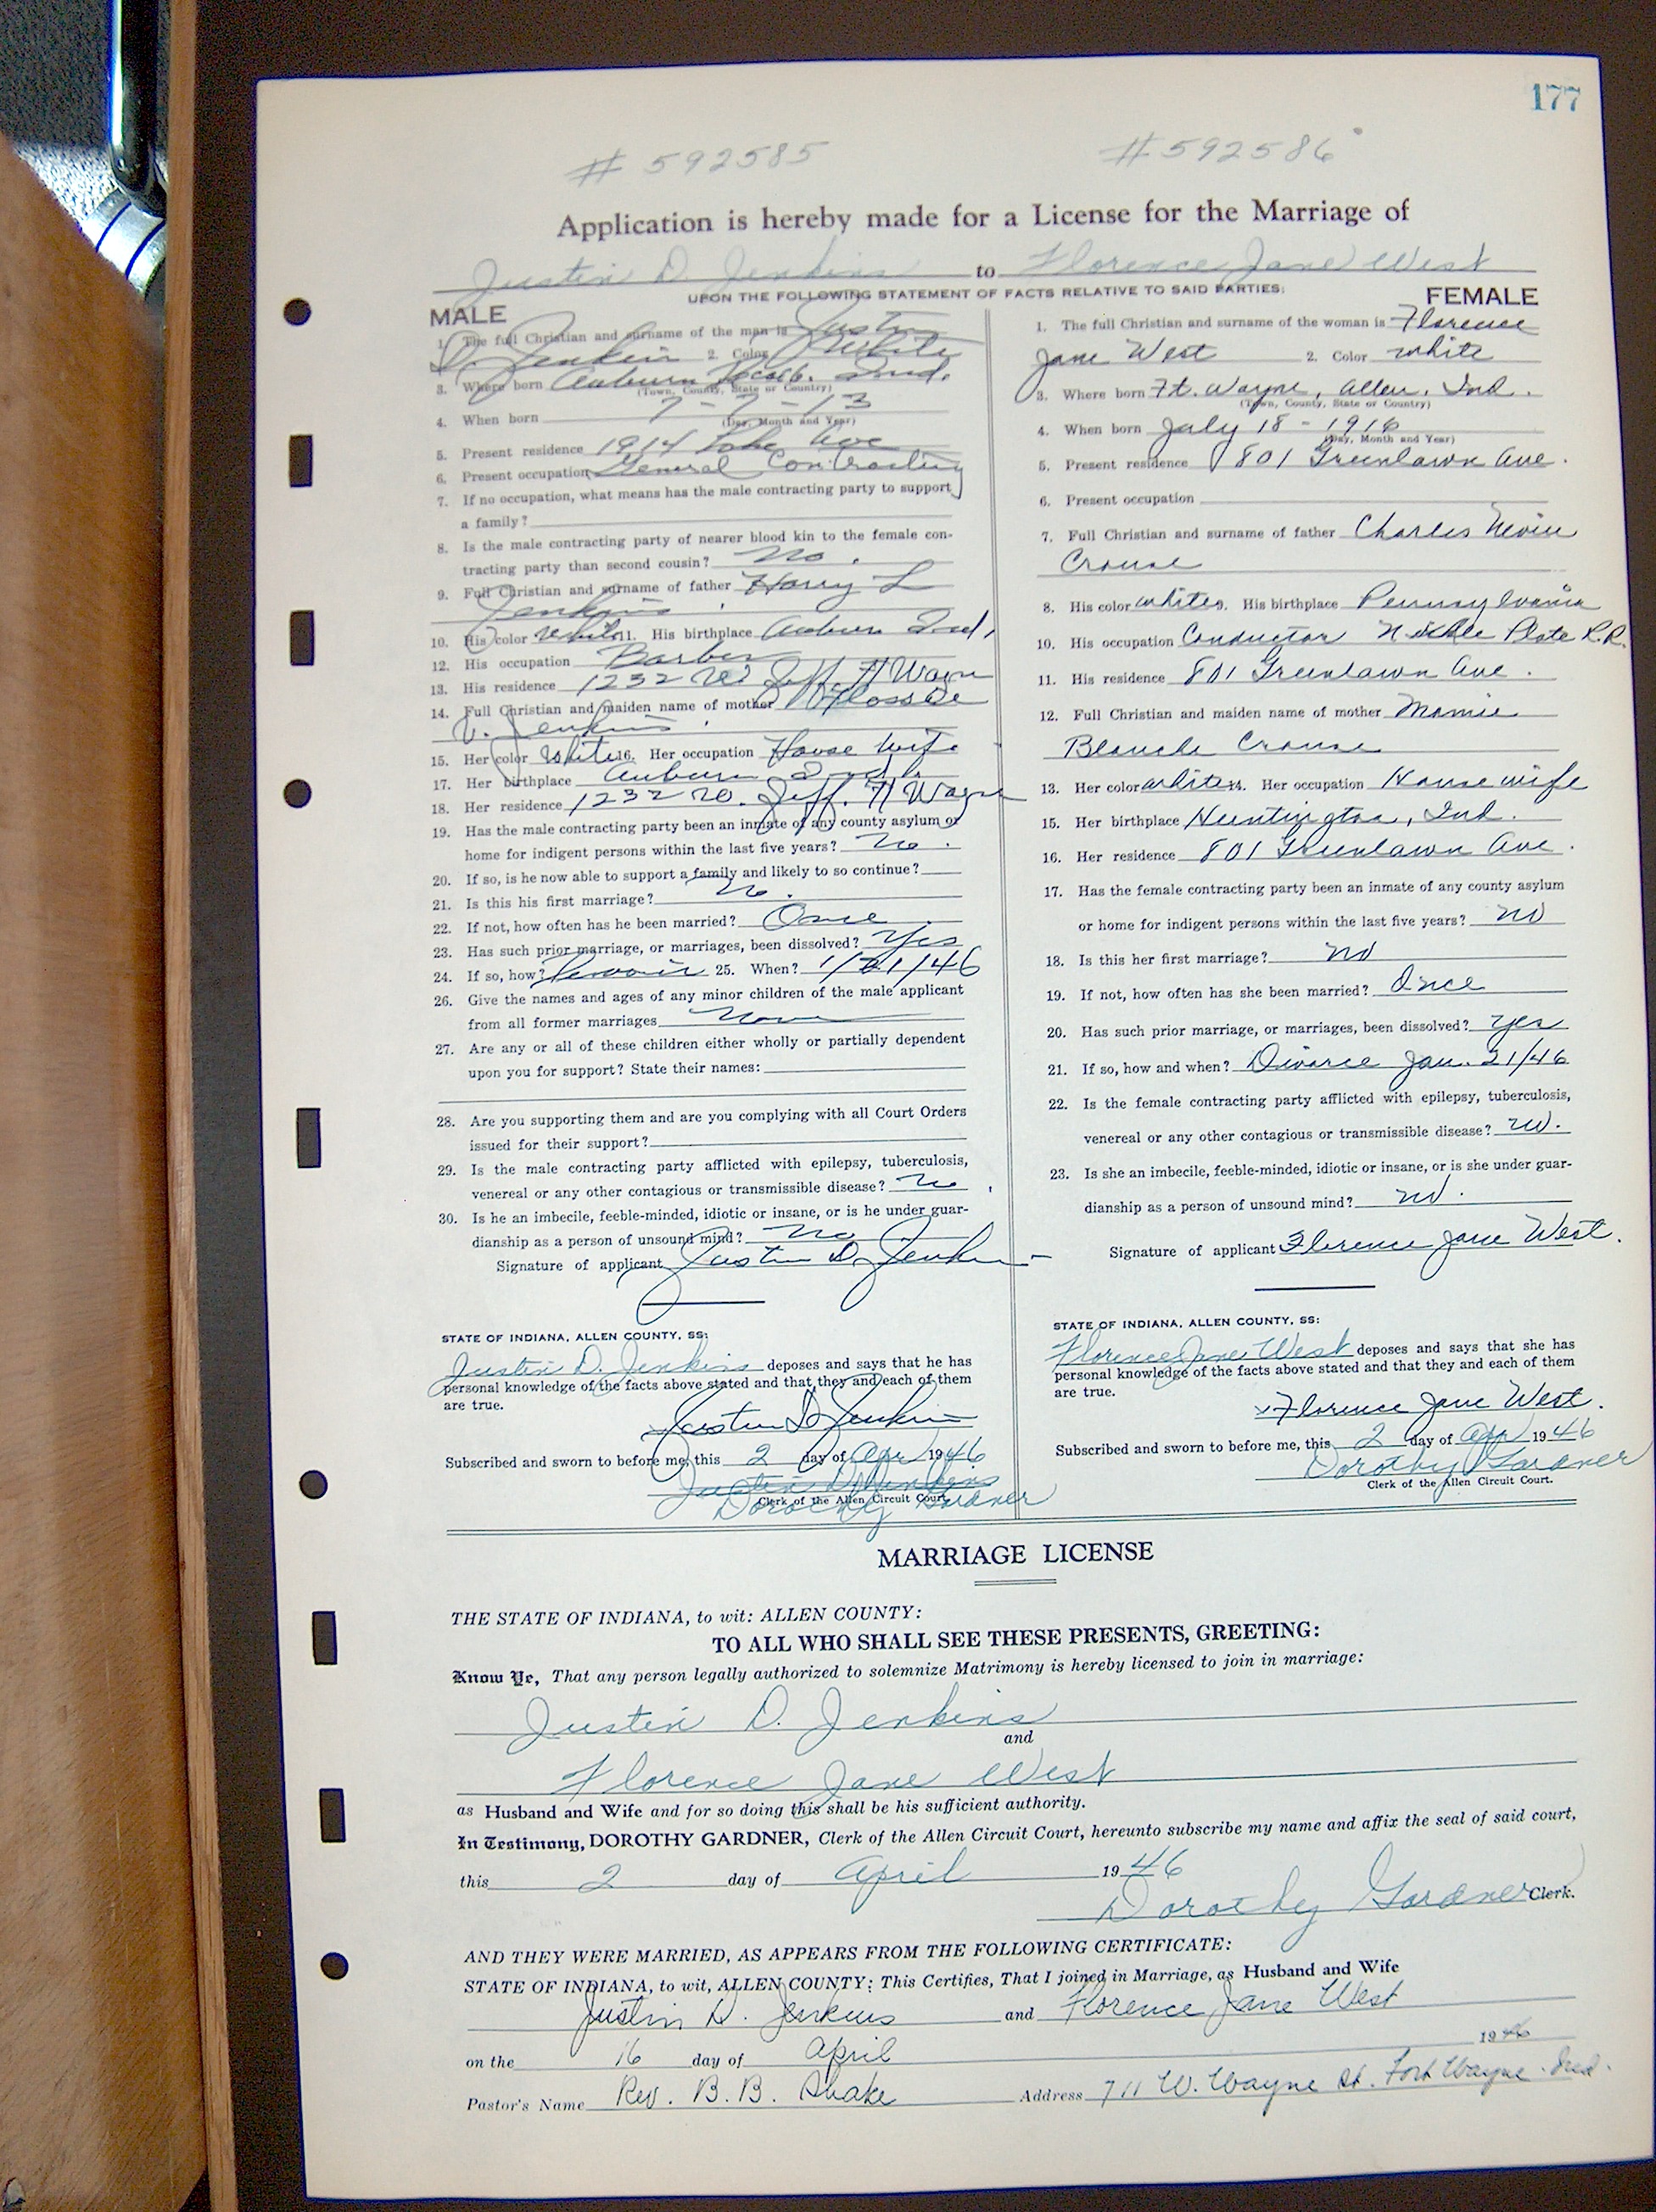 177
# 592585 # 592586
Application is hereby made for a License for the Marriage of
Justin D. Jenkins to Florence Jane West
UPON THE FOLLOWING STATEMENT OF FACTS RELATIVE TO SAID PARTIES:
MALE
1. The full Christian and surname of the man is Justin
D. Jenkins 2. Color White
3. Where born Auburn Ind.
(Town, County, State or Country)
4. When born 7-7-13
(Day, Month and Year)
5. Present residence 1914 Ave
6. Present occupation General Contracting
7. If no occupation, what means has the male contracting party to support
a family?
8. Is the male contracting party of nearer blood kin to the female con-
tracting party than second cousin? No.
9. Full Christian and surname of father Harry L
Jenkins.
10. His color White 11. His birthplace Auburn Ind.
12. His occupation Barber
13. His residence 1232 W. Jeff. Ft Wayne
14. Full Christian and maiden name of mother Flossie
V. Jenkins.
15. Her color White 16. Her occupation House wife
17. Her birthplace Auburn Ind.
18. Her residence 1232 W. Jeff. Ft Wayne
19. Has the male contracting party been an inmate of any county asylum or
home for indigent persons within the last five years? No.
20. If so, is he now able to support a family and likely to so continue?
21. Is this his first marriage? No.
22. If not, how often has he been married? Once
23. Has such prior marriage, or marriages, been dissolved? Yes
24. If so, how? 25. When? 1/21/46
26. Give the names and ages of any minor children of the male applicant
from all former marriages None
27. Are any or all of these children either wholly or partially dependent
upon you for support? State their names:
28. Are you supporting them and are you complying with all Court Orders
issued for their support?
29. Is the male contracting party afflicted with epilepsy, tuberculosis,
venereal or any other contagious or transmissible disease? No
30. Is he an imbecile, feeble-minded, idiotic or insane, or is he under guar-
dianship as a person of unsound mind? No
Signature of applicant Justin D. Jenkins
STATE OF INDIANA, ALLEN COUNTY, SS:
Justin D. Jenkins deposes and says that he has
personal knowledge of the facts above stated and that they and each of them
are true.
Justin D Jenkins
Subscribed and sworn to before me, this 2 day of Apr 1946
Justin D Jenkins
Dorothy Gardner
Clerk of the Allen Circuit Court.
FEMALE
1. The full Christian and surname of the woman is Florence
Jane West 2. Color white
3. Where born Ft. Wayne, Allen, Ind.
(Town, County, State or Country)
4. When born July 18 - 1916
(Day, Month and Year)
5. Present residence 801 Greenlawn Ave.
6. Present occupation
7. Full Christian and surname of father Charles Nevin
Crouse
8. His color white 9. His birthplace Pennsylvania
10. His occupation Conductor Nickle Plate R.R.
11. His residence 801 Greenlawn Ave.
12. Full Christian and maiden name of mother Mamie
Blanche Crouse
13. Her color white 14. Her occupation Housewife
15. Her birthplace Huntington, Ind.
16. Her residence 801 Greenlawn Ave.
17. Has the female contracting party been an inmate of any county asylum
or home for indigent persons within the last five years? no
18. Is this her first marriage? no
19. If not, how often has she been married? Once
20. Has such prior marriage, or marriages, been dissolved? yes
21. If so, how and when? Divorce Jan. 21/46
22. Is the female contracting party afflicted with epilepsy, tuberculosis,
venereal or any other contagious or transmissible disease? no.
23. Is she an imbecile, feeble-minded, idiotic or insane, or is she under guar-
dianship as a person of unsound mind? no.
Signature of applicant Florence Jane West.
STATE OF INDIANA, ALLEN COUNTY, SS:
Florence Jane West deposes and says that she has
personal knowledge of the facts above stated and that they and each of them
are true.
x Florence Jane West.
Subscribed and sworn to before me, this 2 day of Apr 1946
Dorothy Gardner
Clerk of the Allen Circuit Court.
MARRIAGE LICENSE
THE STATE OF INDIANA, to wit: ALLEN COUNTY:
TO ALL WHO SHALL SEE THESE PRESENTS, GREETING:
Know Ye, That any person legally authorized to solemnize Matrimony is hereby licensed to join in marriage:
Justin D. Jenkins
and
Florence Jane West
as Husband and Wife and for so doing this shall be his sufficient authority.
In Testimony, DOROTHY GARDNER, Clerk of the Allen Circuit Court, hereunto subscribe my name and affix the seal of said court,
this 2 day of April 1946
Dorothy Gardner Clerk.
AND THEY WERE MARRIED, AS APPEARS FROM THE FOLLOWING CERTIFICATE:
STATE OF INDIANA, to wit, ALLEN COUNTY: This Certifies, That I joined in Marriage, as Husband and Wife
Justin D. Jenkins and Florence Jane West
on the 16 day of April 1946
Pastor's Name Rev. B. B. Shake Address 711 W. Wayne St. Fort Wayne Ind.